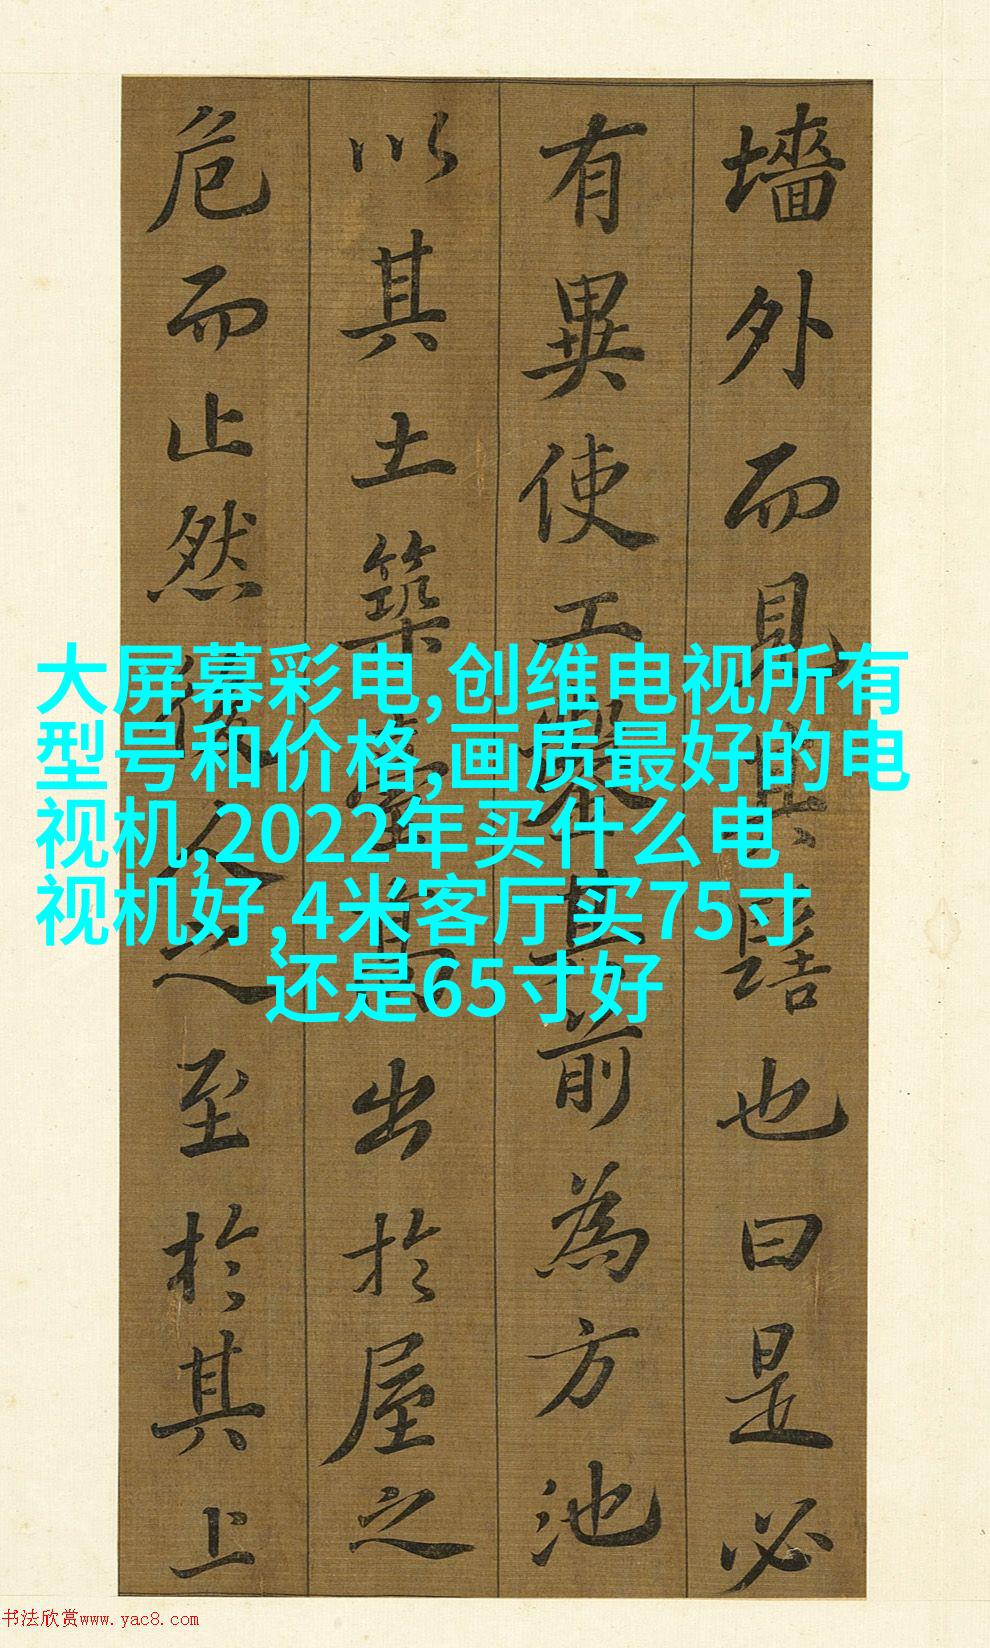 墻外而見其髻也曰是必
有異使工鑿其前為方池
以其土築臺高出於屋之
危而止然後人之至於其上
大屏幕彩电,创维电视所有
型号和价格,画质最好的电
视机,2022年买什么电
视机好,4米客厅买75寸
还是65寸好
书法欣赏www.yac8.com